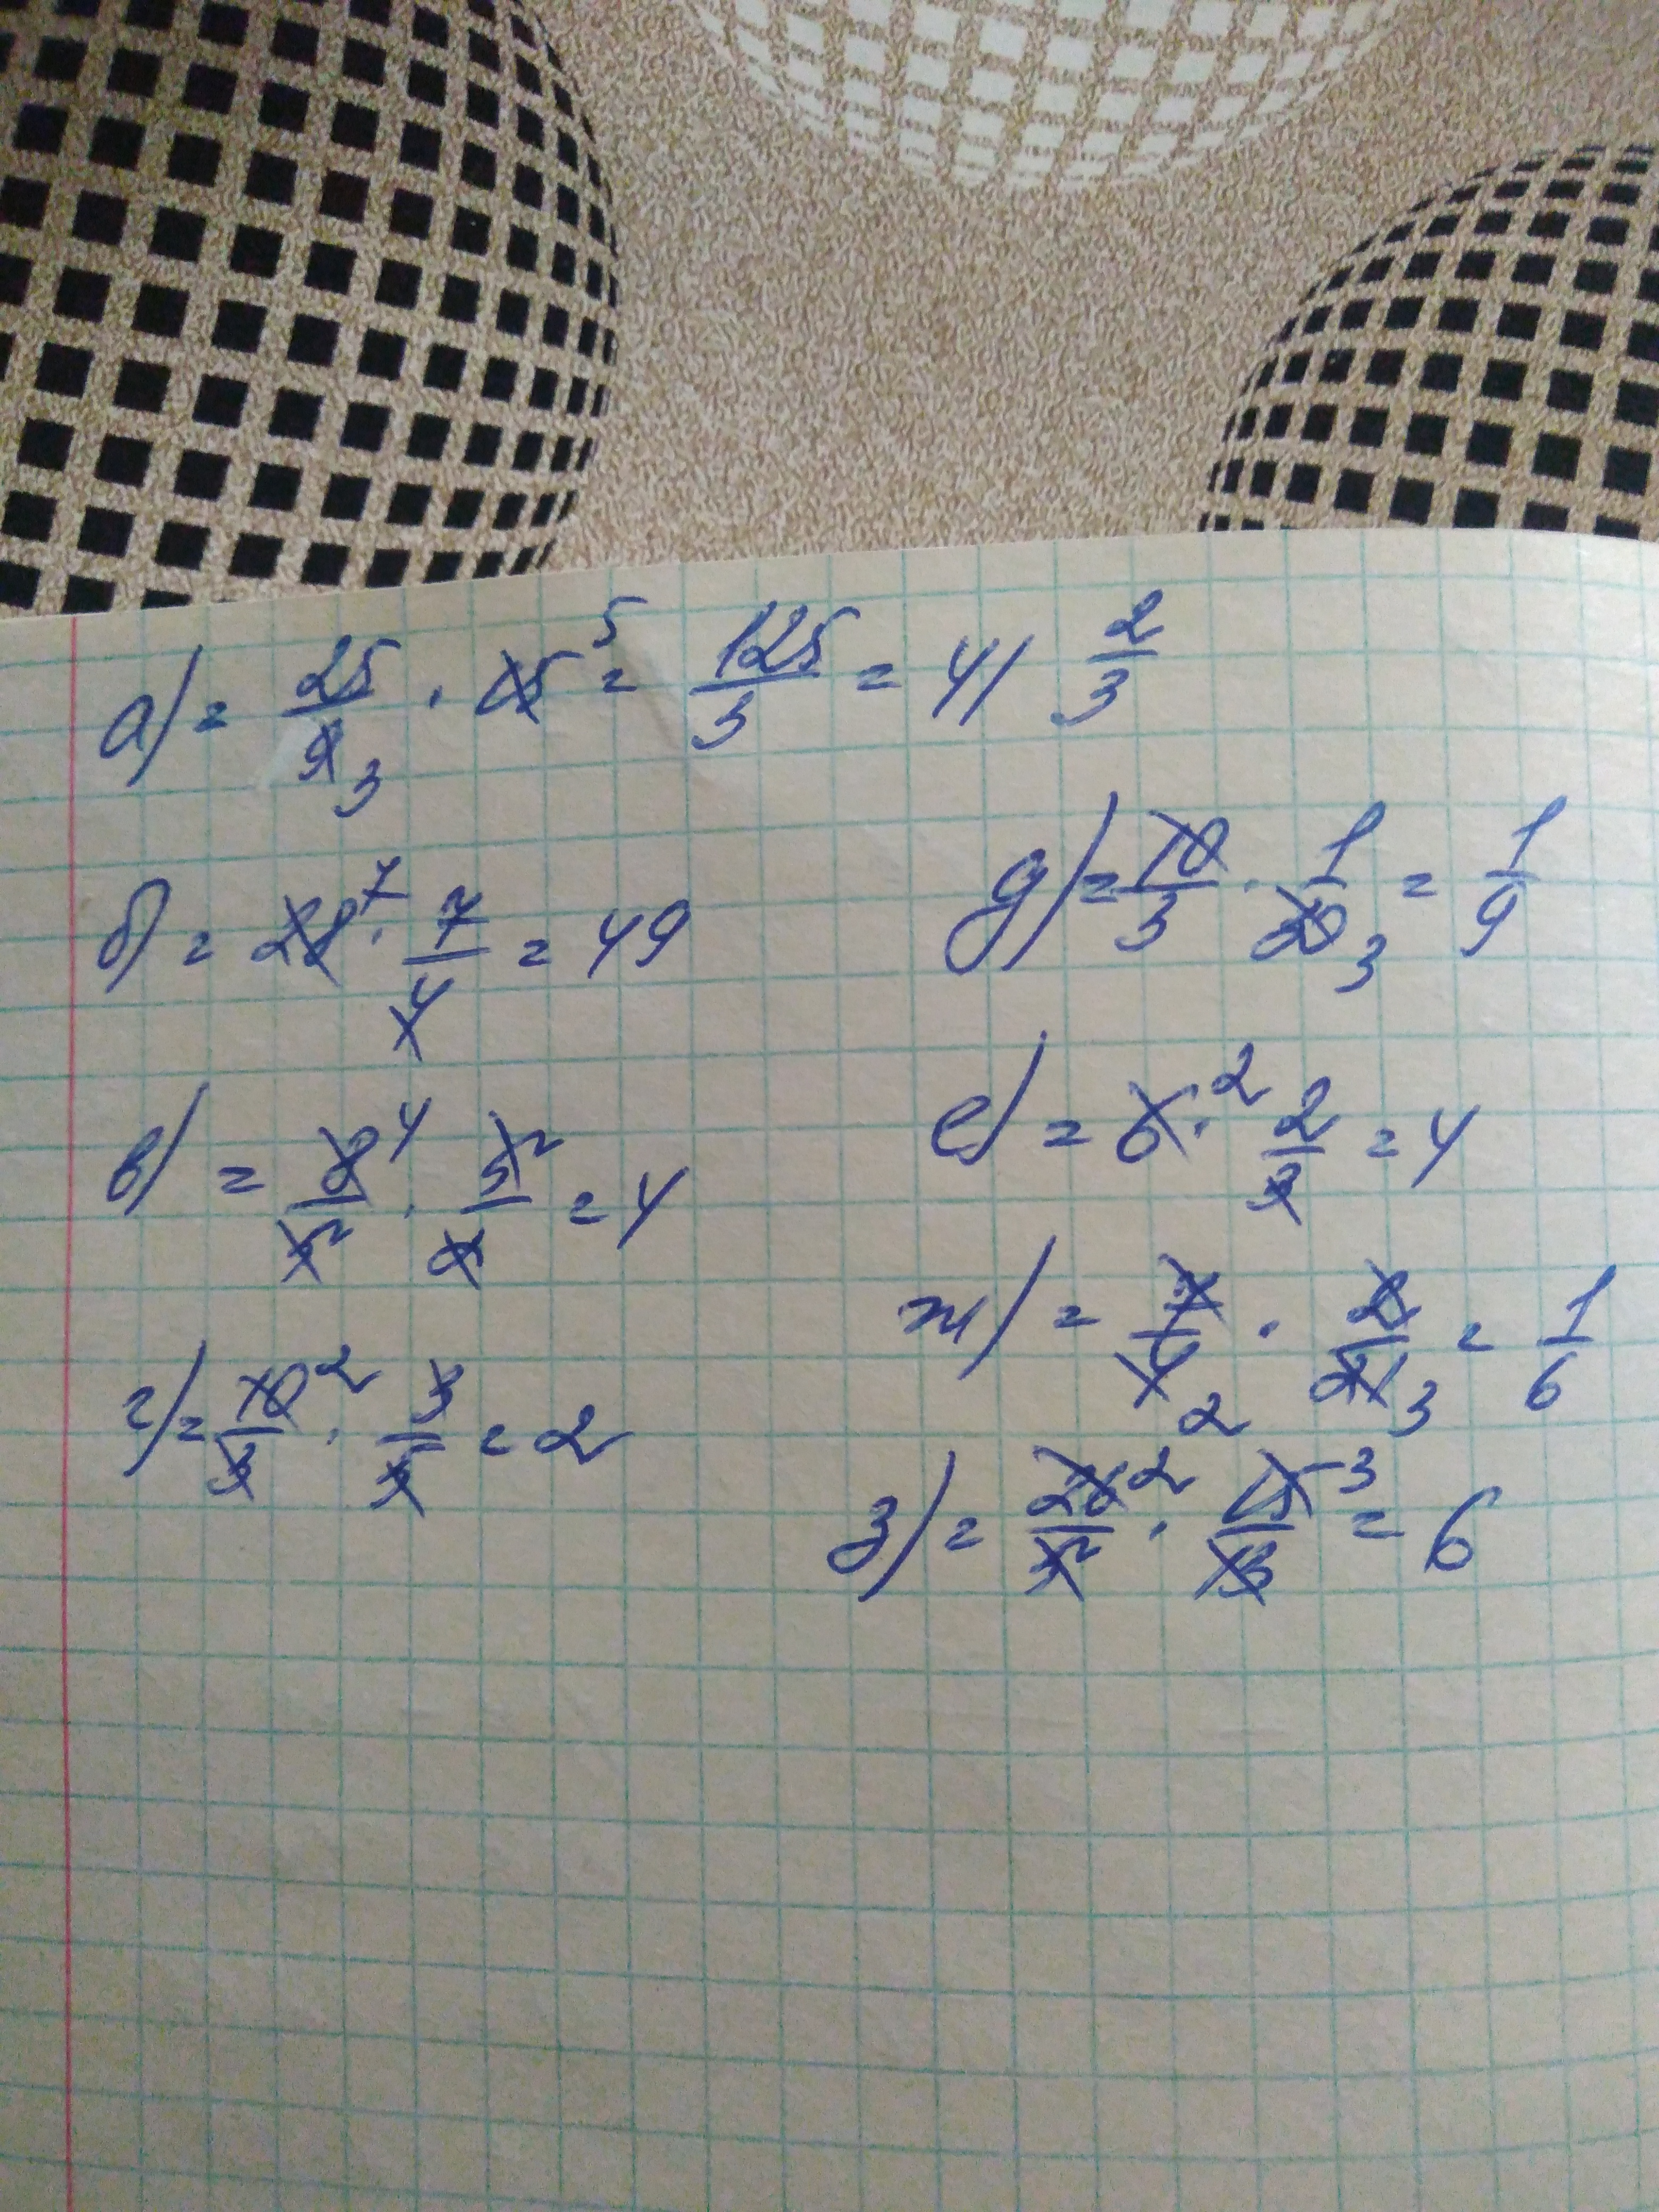 а) = 25/9 3 · 15 5 = 125/3 = 41 2/3
б) = 28 7 · 7/4 = 49
в) = 8 4/5 · 5/2 = 4
г) = 10 2/3 · 3/5 = 2
д) = 10/3 · 1/30 3 = 1/9
е) = 6 2 · 2/3 = 4
ж) = 7/4 2 · 2/21 3 = 1/6
з) = 26 2/5 · 15 3/13 = 6